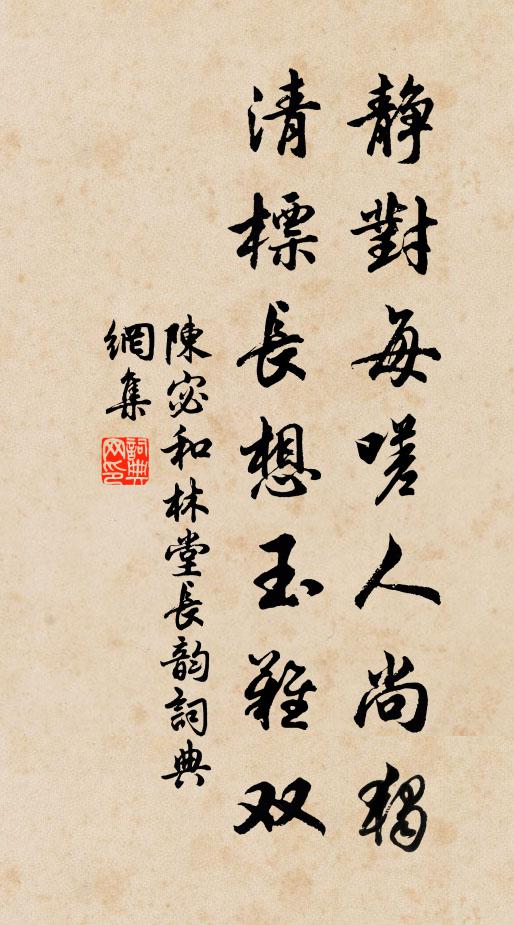 静對每嗟人尚獨
清標長想玉難双
陳宓和林堂長韵詞典
網集
詞典網印